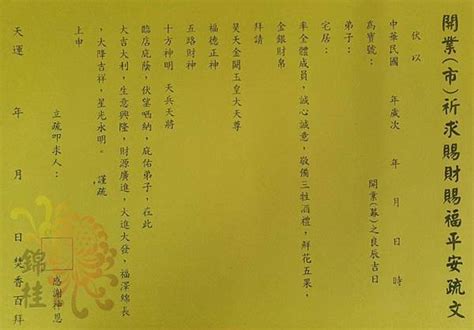 開業(市)祈求賜財賜福平安疏文
伏以
中華民國　年歲次　年　月　日　時
為寶號：　開業(募)之良辰吉日
弟子：
宅居：
率全體成員，誠心誠意，敬備三牲酒禮，鮮花五果，
金銀財帛
拜請
昊天金闕玉皇大天尊
福德正神
五路財神
十方神明　天兵天將
臨店庇蔭，伏望哂納，庇佑弟子，在此
大吉大利，生意興隆，財源廣進，大進大發，福澤綿長
，大降吉祥，星光永明。　謹疏
上申
立疏叩求人：　感謝神恩
天運　年　月　日　焚香百拜
錦桂